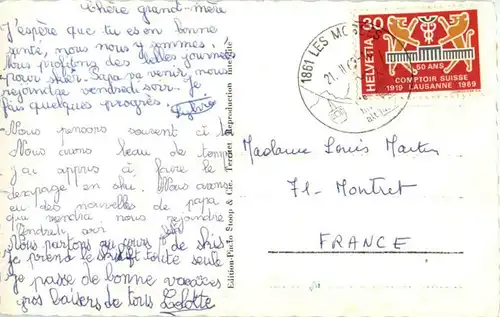 Chère grand-mère
J'espère que tu es en bonne
santé, nous nous y sommes.
Nous profitons des belles journées
pour skier. Papa va venir nous
rejoindre vendredi soir. Je
fais quelques progrès.
Sylvie
Nous pensons souvent à toi
Nous avons beau de temps
j'ai appris à faire le
dérapage en ski. Nous avons
eu des nouvelles de papa
qui viendra nous rejoindre
Vendredi soir
Nous partons au cours de skis
Je prend le skilift toute seule
Je passe de bonne vacances
gros baisers de tous Lolotte
Edition-Photo Stomp & Cie. Territet Reproduction interdite
1861 LES MOSSES
HELVETIA 30
50 ANS
COMPTOIR SUISSE
1919 LAUSANNE 1969
Madame Louis Martin
71-Montret
FRANCE